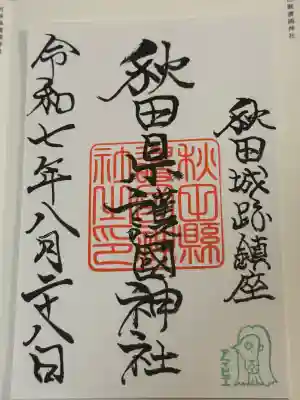 秋田城跡鎮座
秋田県護國神社
秋田縣護國神社之印
令和七年八月二十八日
アマビエ